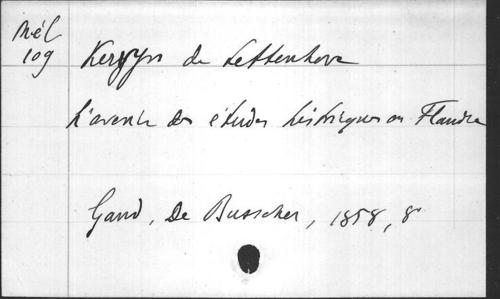 Mél
109
Kervyn de Lettenhove
L'avenir des études historiques en Flandre
Gand, De Busscher, 1858, 8°